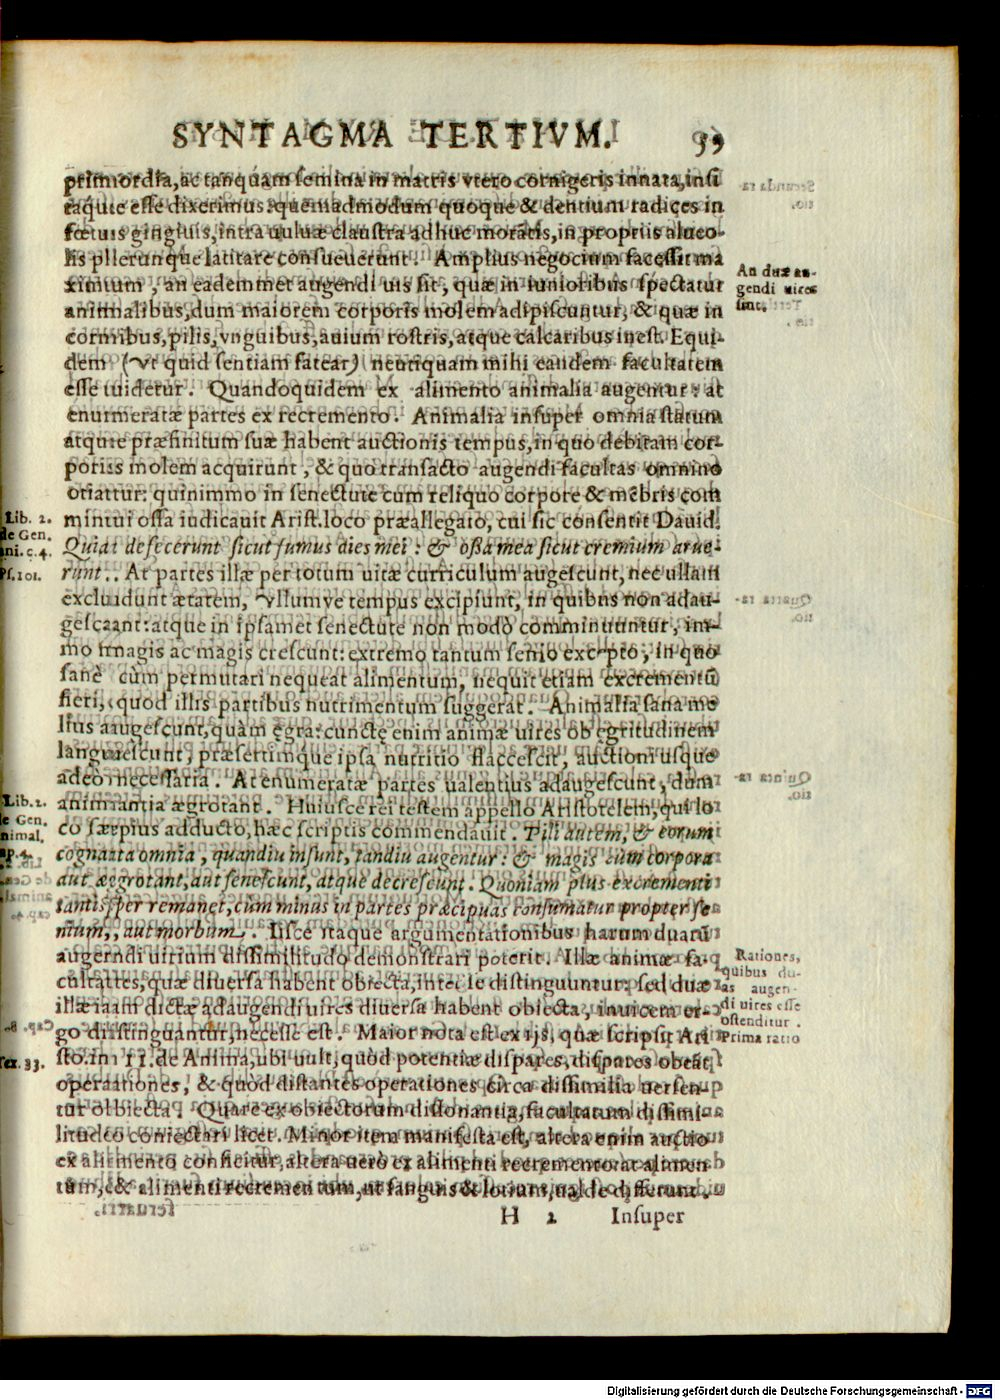 SYNTAGMA TERTIVM. 59
primordia, ac tanquàm semina in matris vtero cornigeris innata, insi
taque esse dixerimus: quemadmodum quoque & dentium radices in
fœtuis gingiuis, intra uuluæ claustra adhuc moratis, in propriis alueo-
lis plerunque latitare consueuerunt. Amplius negocium facessit ma
ximum, an eademmet augendi uis sit, quæ in iunioribus spectatur
An duæ au-
gendi uires
sint.
animalibus, dum maiorem corporis molem adipiscuntur, & quæ in
cornibus, pilis, vnguibus, auium rostris, atque calcaribus inest. Equi-
dem (vt quid sentiam fatear) neutiquam mihi eandem facultatem
esse uidetur. Quandoquidem ex alimento animalia augentur: at
enumeratæ partes ex recremento. Animalia insuper omnia statum
atque præfinitum suæ habent auctionis tempus, in quo debitam cor-
poris molem acquirunt, & quo transacto augendi facultas omnino
otiatur: quinimmo in senectute cum reliquo corpore & mẽbris com
Lib. 2.
de Gen.
ani. c. 4.
Ps. 101.
minui ossa iudicauit Arist. loco præallegato, cui sic consentit Dauid.
Quia defecerunt sicut fumus dies mei: & ossa mea sicut cremium arue-
runt. At partes illæ per totum uitæ curriculum augescunt, nec ullam
excludunt ætatem, vllumve tempus excipiunt, in quibus non adau-
gescant: atque in ipsamet senectute non modò comminuuntur, im-
mo magis ac magis crescunt: extremo tantum senio excepto, in quo
sanè cùm permutari nequeat alimentum, nequit etiam excrementũ
fieri, quod illis partibus nutrimentum suggerat. Animalia sana me
lius augescunt, quàm ęgra: cunctę enim animæ uires ob ęgritudinem
languescunt, præsertimque ipsa nutritio flaccescit, auctioni usque
adeo necessaria. At enumeratæ partes ualentius adaugescunt, dum
Lib. 2.
de Gen.
animal.
cap. 4.
animantia ægrotant. Huiusce rei testem appello Aristotelem, qui lo
co sæpius adducto, hæc scriptis commendauit. Pili autem, & eorum
cognata omnia, quandiu insunt, tandiu augentur: & magis cum corpora
aut ægrotant, aut senescunt, atque decrescunt. Quoniam plus excrementi
tantisper remanet, cum minus in partes præcipuas consumatur propter se
nium, aut morbum. Iisce itaque argumentationibus harum duarũ
augendi uirium dissimilitudo demonstrari poterit. Illæ animæ fa-
Rationes,
quibus du-
as augen-
di uires esse
ostenditur.
Prima ratio
cultates, quæ diuersa habent obiecta, inter se distinguuntur: sed duæ
illæ iam dictæ adaugendi uires diuersa habent obiecta, inuicem er-
go distinguantur, necesse est. Maior nota est ex ijs, quæ scripsit Ari
Tex. 33.
sto. in 11. de Anima, ubi uult, quòd potentiæ dispares, dispares obeãt
operationes, & quòd distantes operationes circa dissimilia uersen-
tur obiecta. Quare ex obiectorum dissonantia, facultatum dissimi-
litudo coniectari licet. Minor item manifesta est, altera enim auctio
ex alimento conficitur, altera uerò ex alimenti recremento: at alimen
tum, & alimenti recrementum, ut sanguis & lotium, ualde differunt.
H 2 Insuper
Digitalisierung gefördert durch die Deutsche Forschungsgemeinschaft - DFG